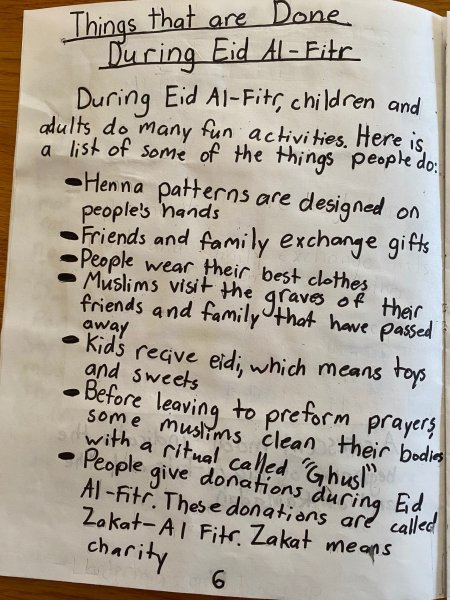 Things that are Done
During Eid Al-Fitr
During Eid Al-Fitr, children and
adults do many fun activities. Here is
a list of some of the things people do:
- Henna patterns are designed on
people's hands
- Friends and family exchange gifts
- People wear their best clothes
- Muslims visit the graves of their
friends and family that have passed
away
- Kids recive eidi, which means toys
and sweets
- Before leaving to preform prayers,
some muslims clean their bodies
with a ritual called "Ghusl"
- People give donations during Eid
Al-Fitr. These donations are called
Zakat-Al Fitr. Zakat means
charity
6